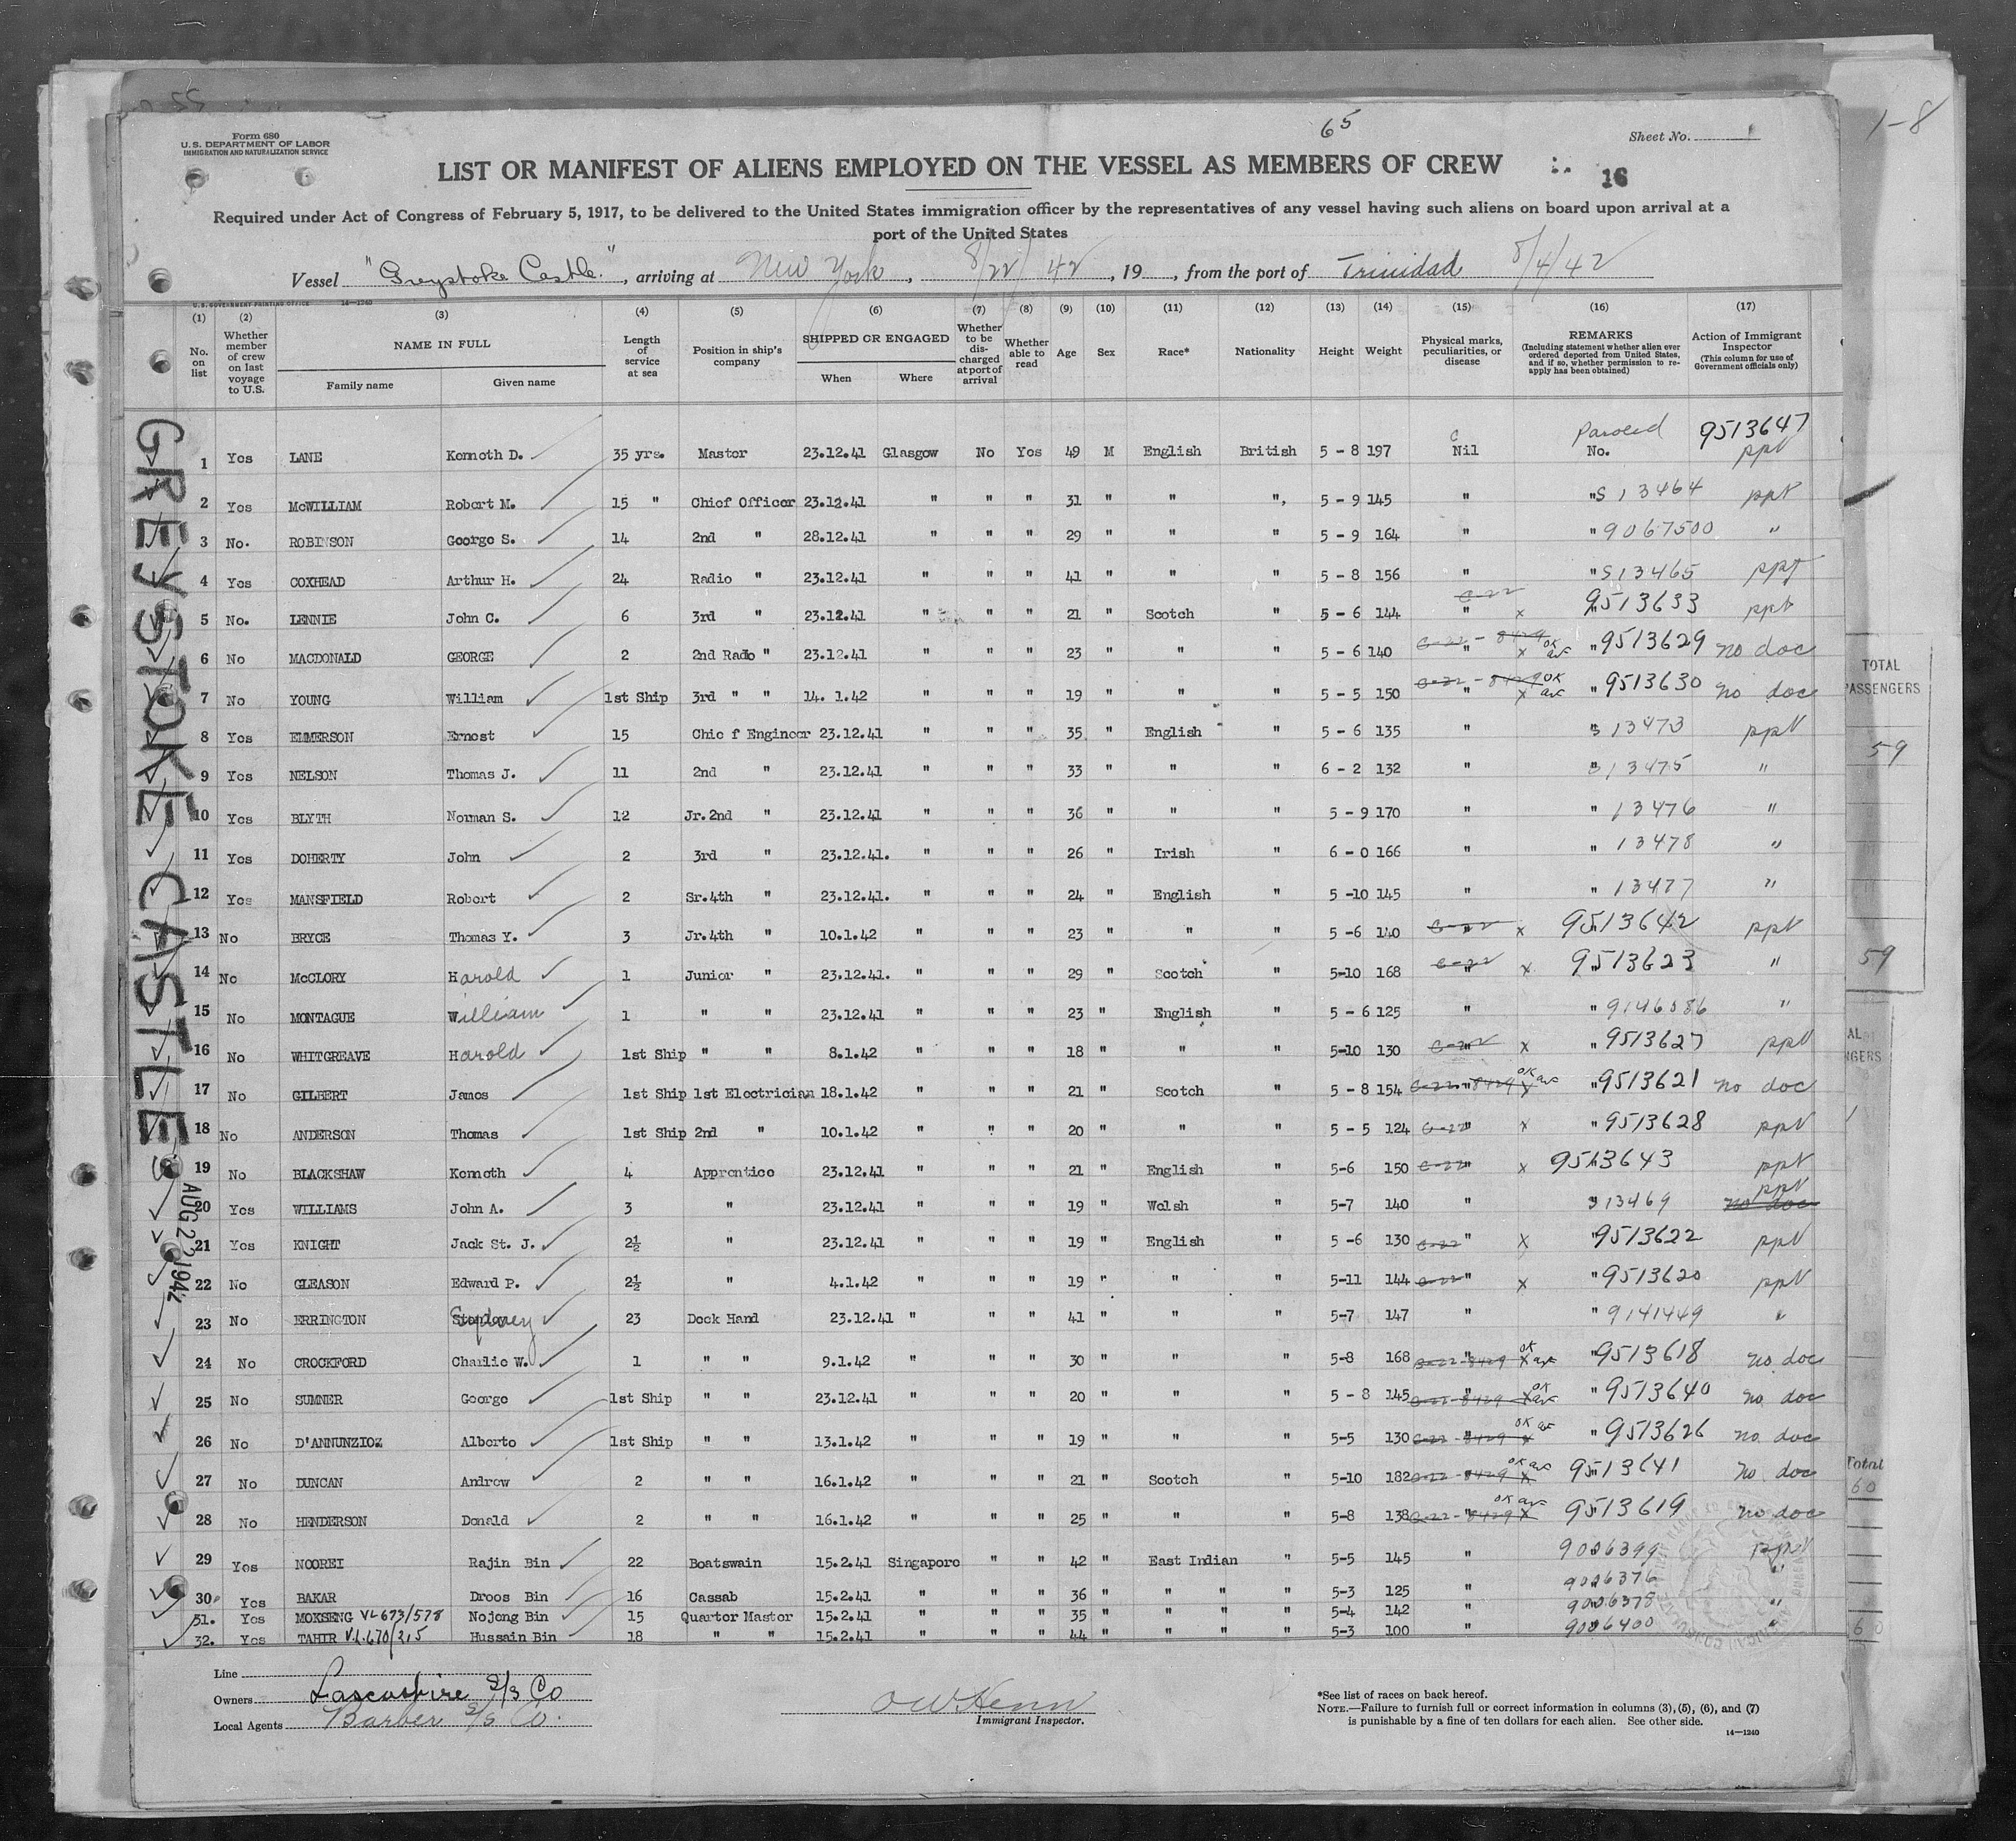 55
65
1-8
Form 680
U.S. DEPARTMENT OF LABOR
IMMIGRATION AND NATURALIZATION SERVICE
Sheet No. 1
LIST OR MANIFEST OF ALIENS EMPLOYED ON THE VESSEL AS MEMBERS OF CREW
16
Required under Act of Congress of February 5, 1917, to be delivered to the United States immigration officer by the representatives of any vessel having such aliens on board upon arrival at a
port of the United States
Vessel "Greystoke Castle.", arriving at New York, 8/22/42, 19, from the port of Trinidad 8/4/42
U.S. GOVERNMENT PRINTING OFFICE 14—1240
(1) (2) (3) (4) (5) (6) (7) (8) (9) (10) (11) (12) (13) (14) (15) (16) (17)
No. on list
Whether member of crew on last voyage to U.S.
NAME IN FULL
Family name Given name
Length of service at sea
Position in ship's company
SHIPPED OR ENGAGED
When Where
Whether to be discharged at port of arrival
Whether able to read
Age
Sex
Race*
Nationality
Height
Weight
Physical marks, peculiarities, or disease
REMARKS
(Including statement whether alien ever ordered deported from United States, and if so, whether permission to reapply has been obtained)
Action of Immigrant Inspector
(This column for use of Government officials only)
GREYSTOKE CASTLE
AUG 22 1942
1 Yes LANE Kenneth D. 35 yrs. Master 23.12.41 Glasgow No Yes 49 M English British 5 - 8 197 Nil Paroled No. 9513647 ppt
2 Yes McWILLIAM Robert M. 15 " Chief Officer 23.12.41 " " " 31 " " " 5 - 9 145 " "S13464 ppt
3 No. ROBINSON George S. 14 2nd " 28.12.41 " " " 29 " " " 5 - 9 164 " "9067500 "
4 Yes COXHEAD Arthur H. 24 Radio " 23.12.41 " " " 41 " " " 5 - 8 156 " "S13465 ppt
5 No. LENNIE John C. 6 3rd " 23.12.41 " " " 21 " Scotch " 5 - 6 144 C-22 " x 9513633 ppt
6 No MACDONALD GEORGE 2 2nd Radio " 23.12.41 " " " 23 " " " 5 - 6 140 C-22 - 8429 " x OK "9513629 no doc
7 No YOUNG William 1st Ship 3rd " " 14. 1.42 " " " 19 " " " 5 - 5 150 C-22 - 8429 " x OK "9513630 no doc
8 Yes EMMERSON Ernest 15 Chie f Engineer 23.12.41 " " " 35 " English " 5 - 6 135 " S13473 ppt
9 Yes NELSON Thomas J. 11 2nd " 23.12.41 " " " 33 " " " 6 - 2 132 " S13475 "
10 Yes BLYTH Norman S. 12 Jr.2nd " 23.12.41 " " " 36 " " " 5 - 9 170 " " 13476 "
11 Yes DOHERTY John 2 3rd " 23.12.41. " " " 26 " Irish " 6 - 0 166 " " 13478 "
12 Yes MANSFIELD Robert 2 Sr.4th " 23.12.41. " " " 24 " English " 5 -10 145 " " 13477 "
13 No BRYCE Thomas Y. 3 Jr.4th " 10.1.42 " " " 23 " " " 5 -6 140 C-22 x 9513642 ppt
14 No McCLORY Harold 1 Junior " 23.12.41. " " " 29 " Scotch " 5-10 168 C-22 x 9513623 "
15 No MONTAGUE William 1 " " 23.12.41 " " " 23 " English " 5 - 6 125 " "9146086 "
16 No WHITGREAVE Harold 1st Ship " " 8.1.42 " " " 18 " " " 5-10 130 C-22 x "9513627 ppt
17 No GILBERT James 1st Ship 1st Electrician 18.1.42 " " " 21 " Scotch " 5 - 8 154 C-22 " 8429 x OK "9513621 no doc
18 No ANDERSON Thomas 1st Ship 2nd " 10.1.42 " " " 20 " " " 5 - 5 124 C-22 " x "9513628 ppt
19 No BLACKSHAW Kenneth 4 Apprentice 23.12.41 " " " 21 " English " 5-6 150 C-22 " x 9513643 ppt
20 Yes WILLIAMS John A. 3 " 23.12.41 " " " 19 " Welsh " 5-7 140 " S13469 ppt no doc
21 Yes KNIGHT Jack St. J. 2½ " 23.12.41 " " " 19 " English " 5 -6 130 C-22 " x "9513622 ppt
22 No GLEASON Edward P. 2½ " 4.1.42 " " " 19 " " " 5-11 144 C-22 " x "9513620 ppt
23 No ERRINGTON 23 Deck Hand 23.12.41 " " " 41 " " " 5-7 147 " "9141449 "
24 No CROCKFORD Charlie W. 1 " " 9.1.42 " " " 30 " " " 5-8 168 C-22 - 8429 x OK "9513618 no doc
25 No SUMNER George 1st Ship " " 23.12.41 " " " 20 " " " 5 - 8 145 C-22 - 8429 x OK "9513640 no doc
26 No D'ANNUNZIOZ Alberto 1st Ship " " 13.1.42 " " " 19 " " " 5-5 130 C-22 - 8429 x OK "9513626 no doc
27 No DUNCAN Andrew 2 " " 16.1.42 " " " 21 " Scotch " 5-10 182 C-22 - 8429 x OK 9513641 no doc
28 No HENDERSON Donald 2 " " 16.1.42 " " " 25 " " " 5-8 138 C-22 - 8429 x OK 9513619 no doc
29 Yes NOOREI Rajin Bin 22 Boatswain 15.2.41 Singapore " " 42 " East Indian " 5-5 145 " 9006399 ppt
30 Yes BAKAR Droos Bin 16 Cassab 15.2.41 " " " 36 " " " " 5-3 125 " 9026376 "
31. Yes MOKSENG VL 673/578 Nojong Bin 15 Quarter Master 15.2.41 " " " 35 " " " " 5-4 142 " 9006378 "
32. Yes TAHIR V.L.670/215 Hussain Bin 18 " " 15.2.41 " " " 44 " " " " 5-3 100 " 9006400 "
TOTAL
PASSENGERS
59
59
Total
60
60
Line
Owners Lancashire S/S Co
Local Agents Barber S/S Co.
Immigrant Inspector.
*See list of races on back hereof.
NOTE.—Failure to furnish full or correct information in columns (3), (5), (6), and (7)
is punishable by a fine of ten dollars for each alien. See other side.
14—1240